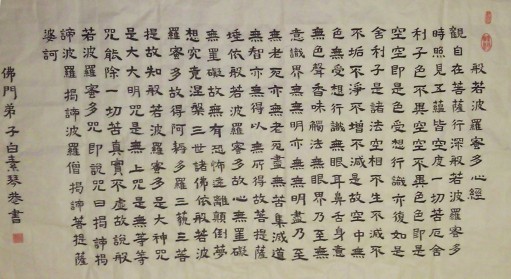 般若波羅蜜多心經
觀自在菩薩行深般若波羅蜜多
時照見五蘊皆空度一切苦厄舍
利子色不異空空不異色色即是
空空即是色受想行識亦復如是
舍利子是諸法空相不生不滅不
垢不淨不增不減是故空中無
色無受想行識無眼耳鼻舌身意
無色聲香味觸法無眼界乃至無
意識界無無明亦無無明盡乃至
無老死亦無老死盡無苦集滅道
無智亦無得以無所得故菩提薩
埵依般若波羅蜜多故心無罣礙
無罣礙故無有恐怖遠離顛倒夢
想究竟涅槃三世諸佛依般若波
羅蜜多故得阿耨多羅三藐三菩
提故知般若波羅蜜多是大神咒
是大明咒是無上咒是無等等
咒能除一切苦真實不虛故說般
若波羅蜜多咒即說咒曰揭諦揭
諦波羅揭諦波羅僧揭諦菩提薩
婆訶
佛門弟子白素琴恭書